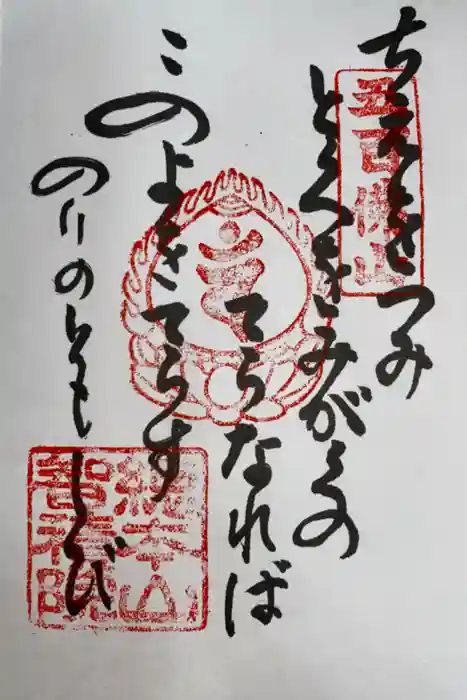 五百佛山
ちえをつみ
とくをみがくの
てらなれば
このよをてらす
のりのともしび
總本山
智積院